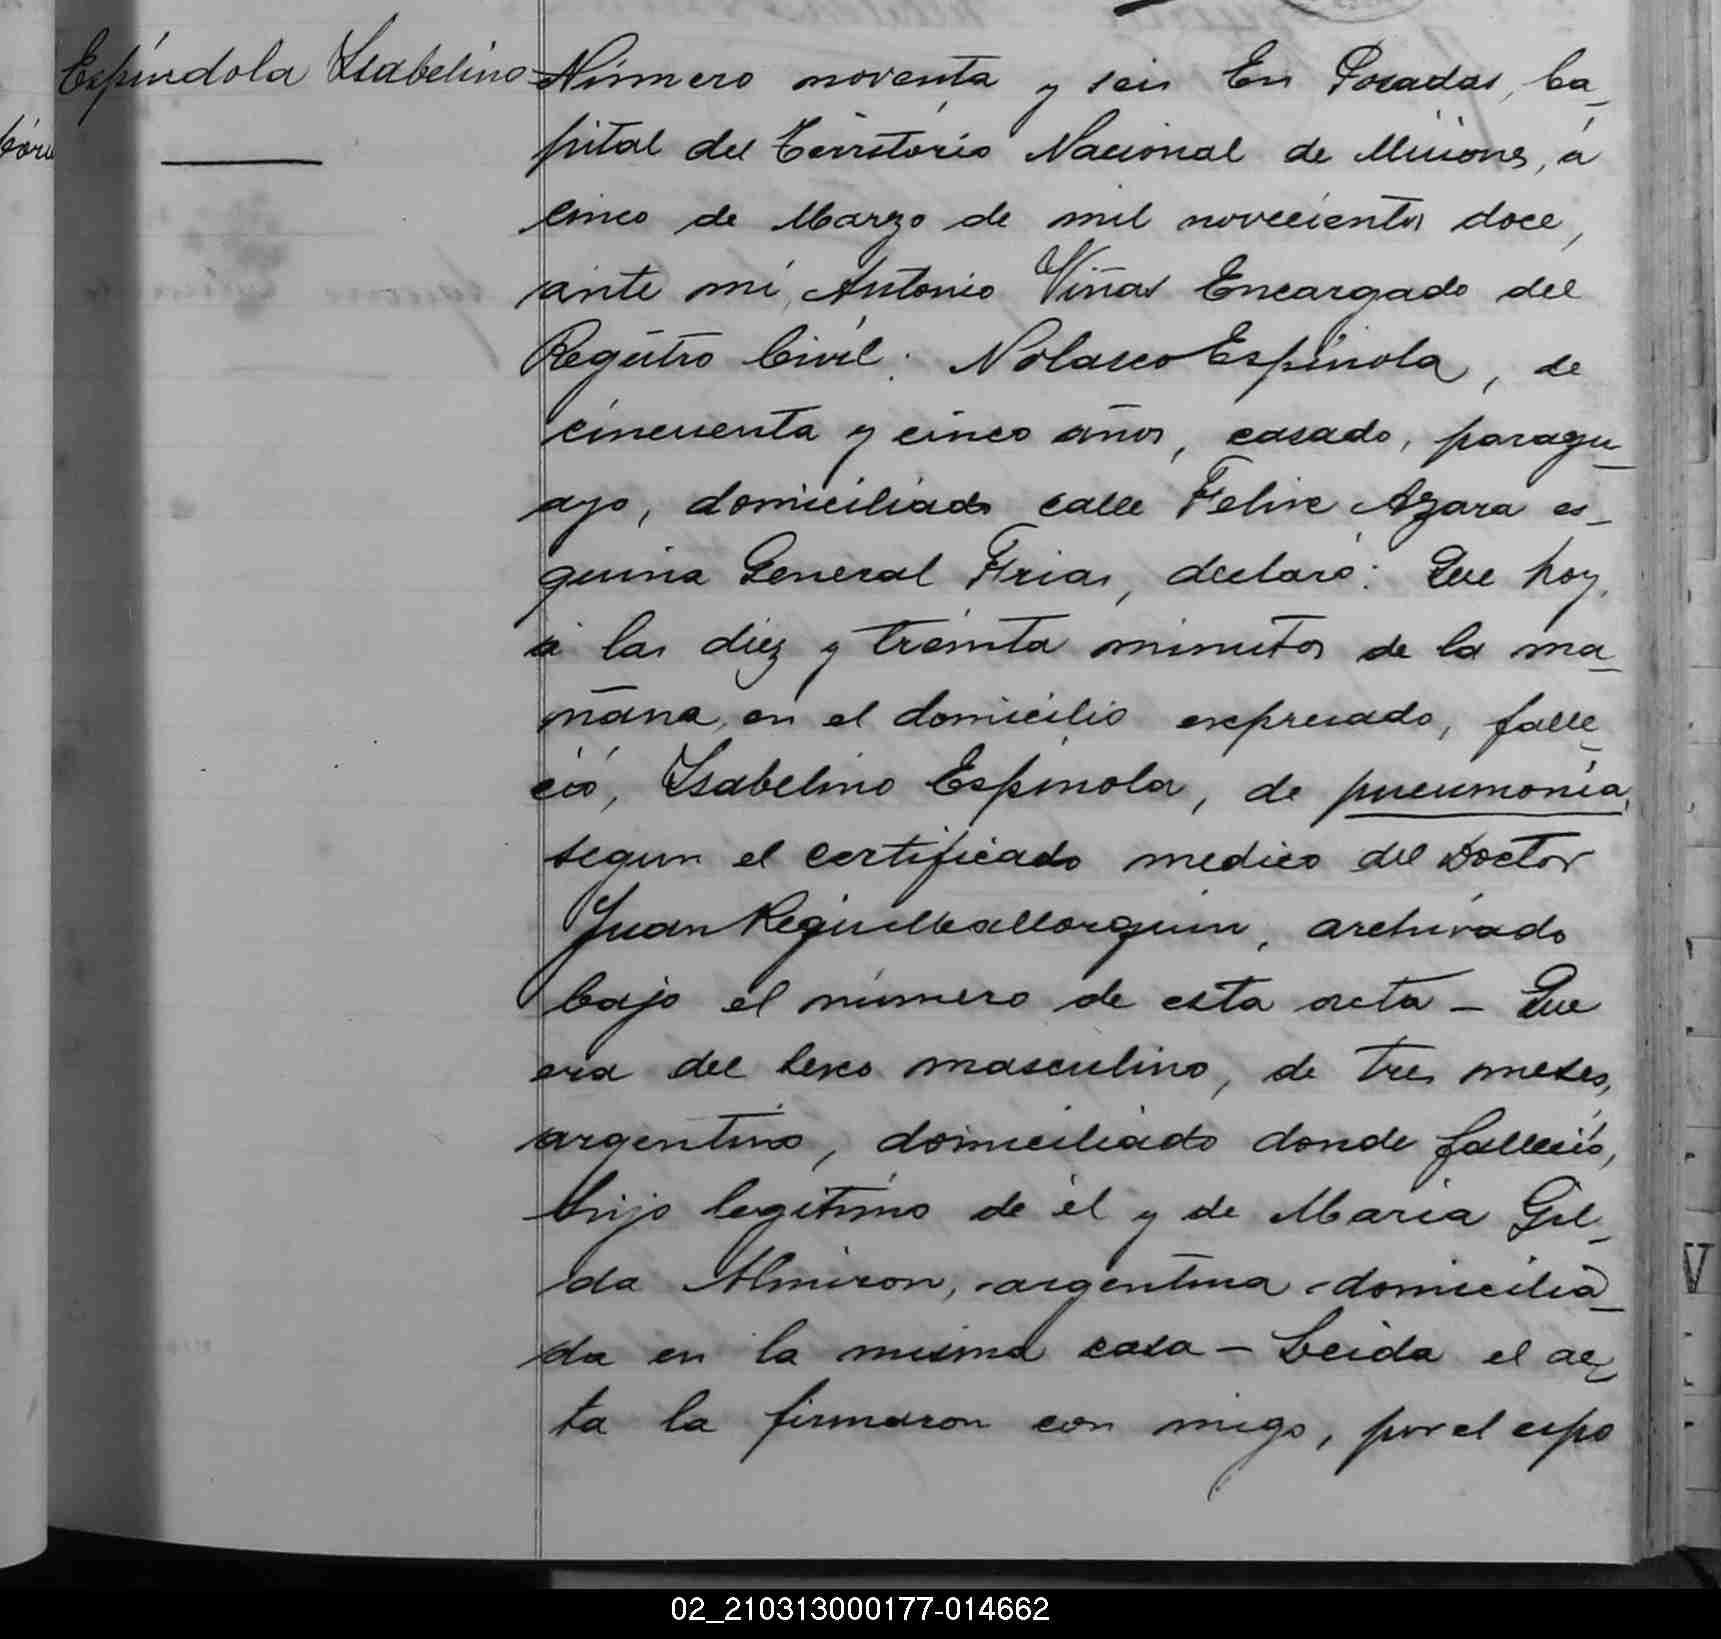 Espíndola Isabelino
Número noventa y seis En Posadas, Ca_
pital del Territorio Nacional de Misiones, á
cinco de Marzo de mil novecientos doce,
ante mí, Antonio Viñas Encargado del
Registro Civil: Nolasco Espínola, de
cincuenta y cinco años, casado, paragu_
ayo, domiciliado calle Felix Azara es_
quina General Frias, declaró: Que hoy,
á las diez y treinta minutos de la ma_
ñana, en el domicilio expresado, falle_
ció, Isabelino Espinola, de pneumonía,
segun el certificado medico del Doctor
Juan archivado
bajo el número de esta acta – Que
era del sexo masculino, de tres meses,
argentino, domiciliado donde falleció,
hijo legítimo de él y de Maria Gil_
da Almiron, argentina domicilia_
da en la misma casa – Leida el ac_
ta la firmaron con migo, por el espo
V
02_210313000177-014662